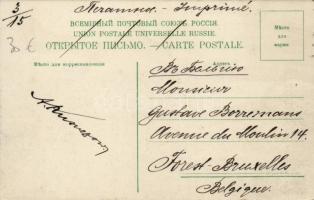 3/15
Печатное. - Imprimé.
ВСЕМІРНЫЙ ПОЧТОВЫЙ СОЮЗЪ РОССІЯ.
UNION POSTALE UNIVERSELLE RUSSIE.
30 €
ОТКРЫТОЕ ПИСЬМО. — CARTE POSTALE.
Мѣсто
для
марки
Мѣсто для корреспонденціи
Адресъ
Въ Бельгію
Monsieur
Gustave Borremans
Avenue du Moulin 14.
Forest-Bruxelles
Belgique.